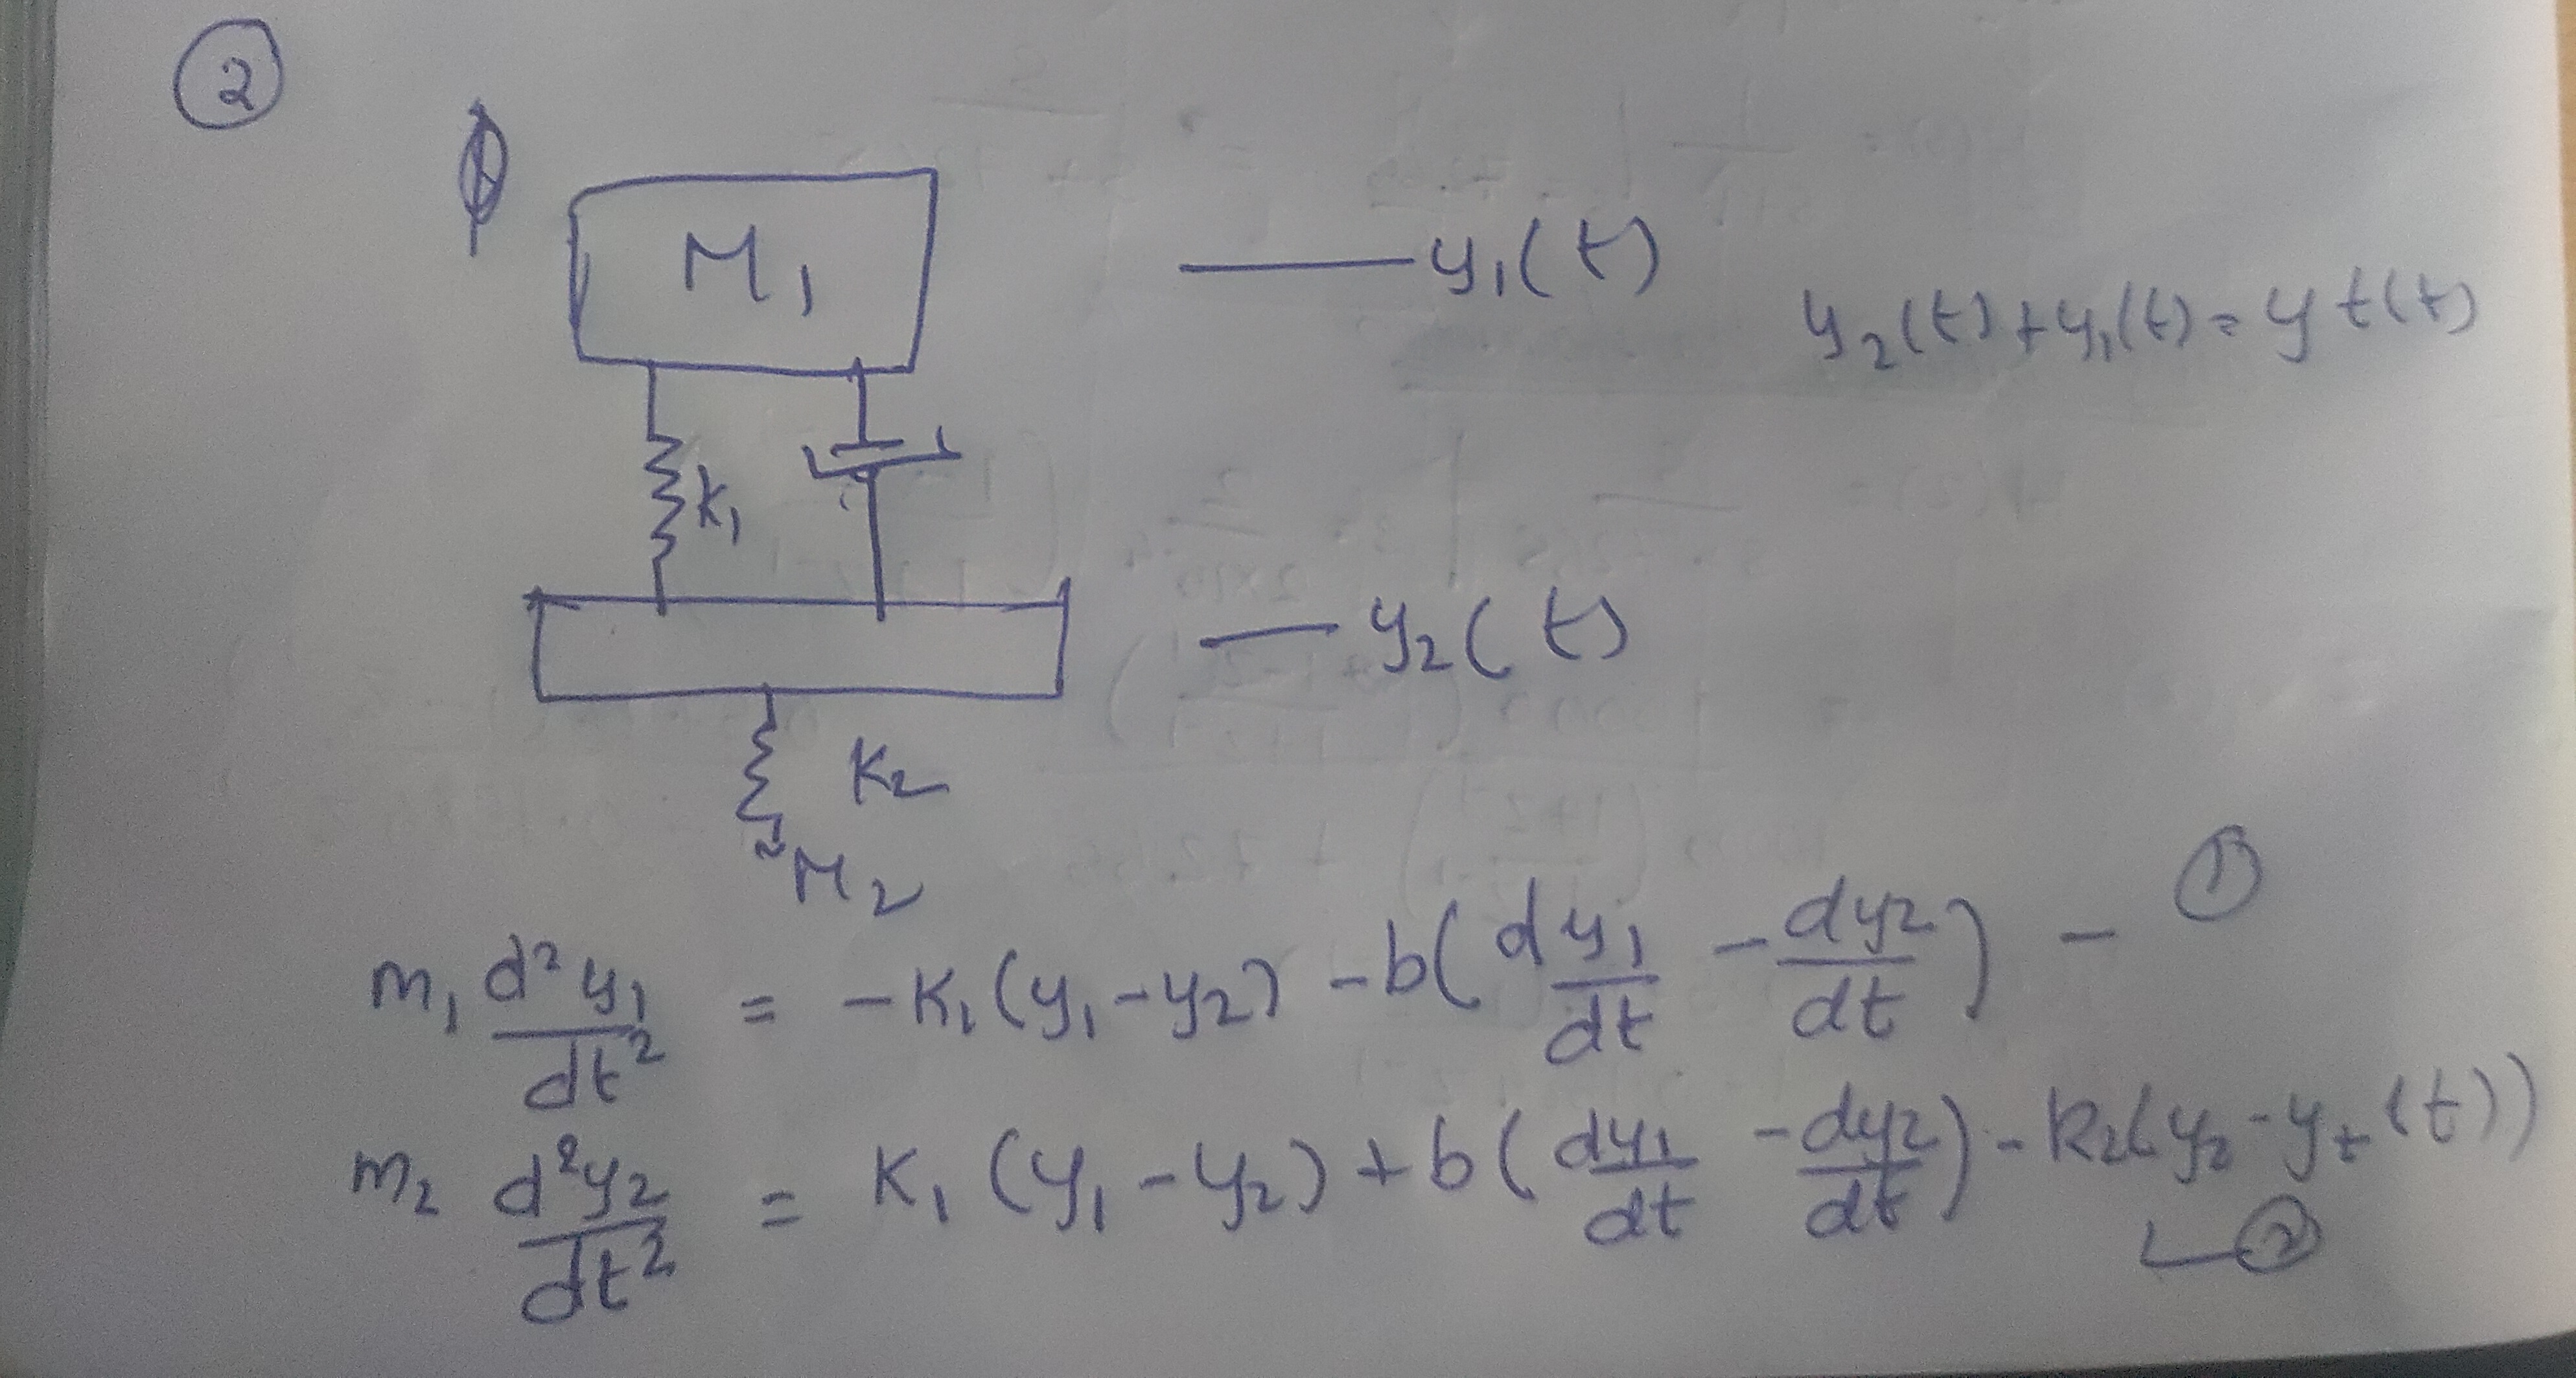 ②
M₁
y₁(t)
y₂(t) + y₁(t) = y t(t)
K₁
y₂(t)
K₂
M₂
m₁ d²y₁/dt² = -K₁(y₁-y₂) - b(dy₁/dt - dy₂/dt) - ①
m₂ d²y₂/dt² = K₁(y₁-y₂) + b(dy₁/dt - dy₂/dt) - k₂(y₂-yₜ(t))
②